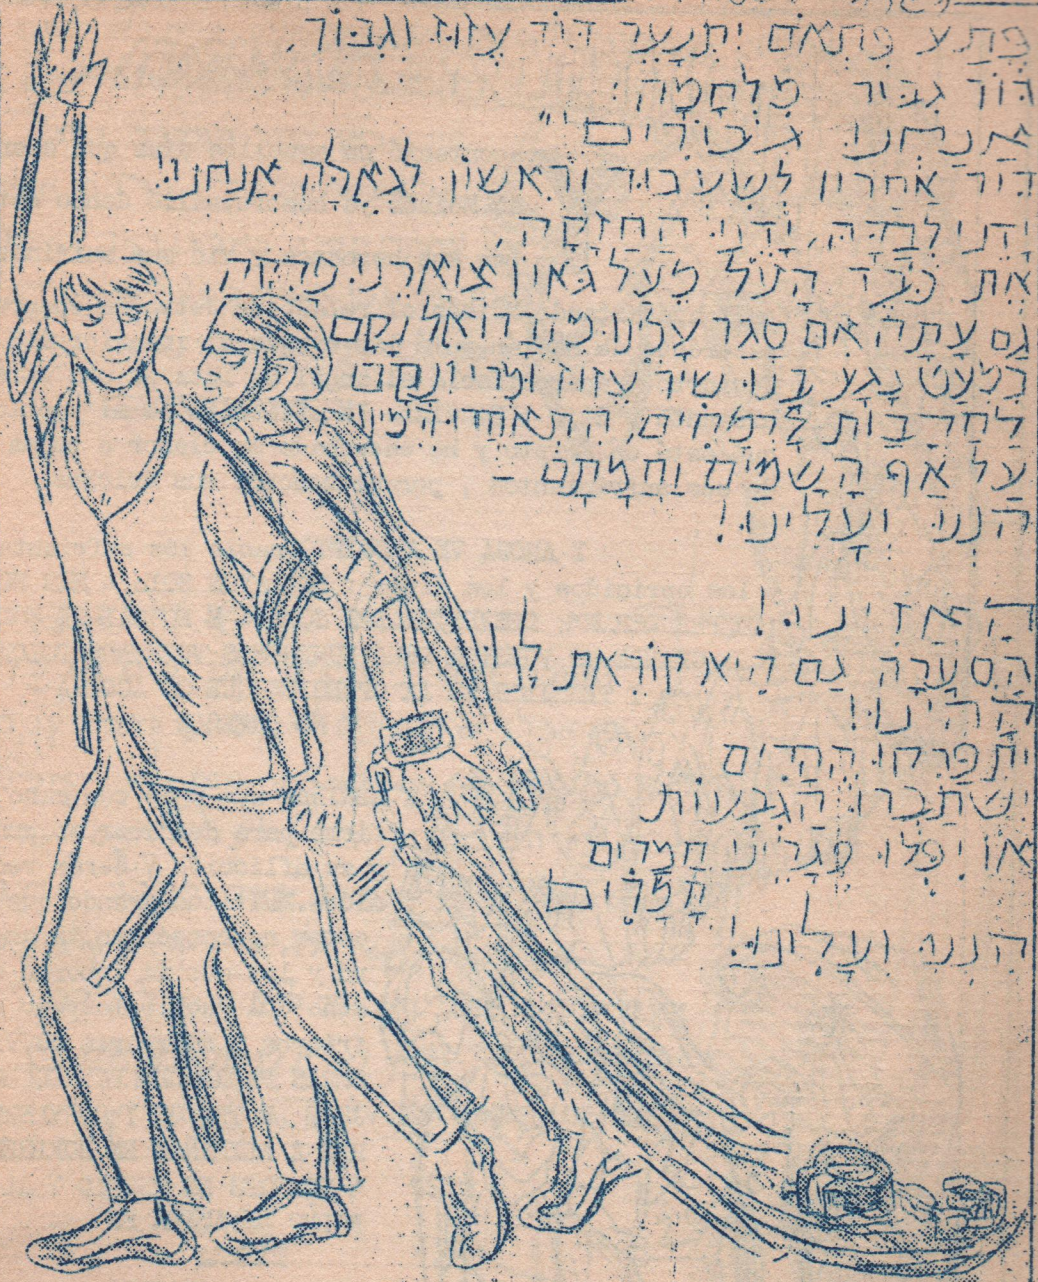 פֶּתַע פִּתְאֹם יִתְנַעֵר דּוֹר עִזּוּז וְגִבּוֹר,
דּוֹר גִּבּוֹר מִלְחָמָה:
"אֲנַחְנוּ גִּבּוֹרִים!"
דּוֹר אַחֲרוֹן לְשִׁעְבּוּד וְרִאשׁוֹן לִגְאֻלָּה אֲנַחְנוּ!
יָדֵנוּ לְבַדָּהּ, יָדֵנוּ הַחֲזָקָה,
אֶת כֹּבֶד הָעֹל מֵעַל גְּאוֹן צַוָּארֵנוּ פָּרָקָה.
גַּם עַתָּה אִם סָגַר עָלֵינוּ מִדְבָּר וְאֵל נָקָם
כִּמְעַט נָגַע בָּנוּ שִׁיר עִזּוּז וּמְרִי וַנָּקָם
לַחֲרָבוֹת לָרְמָחִים, הִתְאַחֲדוּ
עַל אַף הַשָּׁמַיִם וַחֲמָתָם -
הִנְנוּ וְעָלִינוּ!
הַאֲזִינוּ!
הַסְּעָרָה גַּם הִיא קוֹרֵאת לָנוּ
הָהִינוּ!
יִתְפָּרְקוּ הֶהָרִים
יִשְׁתַּבְּרוּ הַגְּבָעוֹת
אוֹ יִפְּלוּ פְגָרֵינוּ חֳמָרִים
חֳמָרִים
הִנְנוּ וְעָלִינוּ!